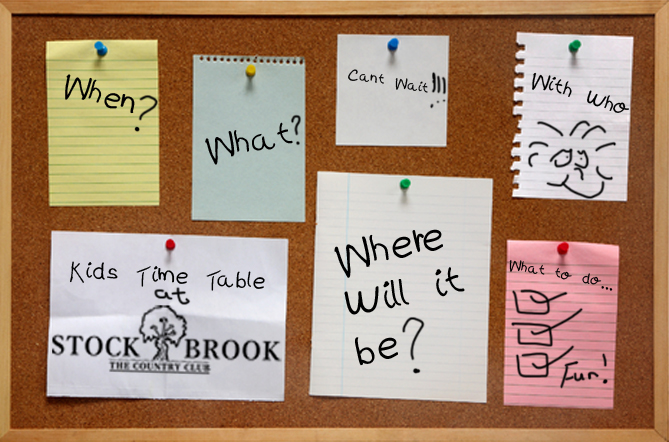 When?
What?
Cant Wait!!!
With Who
Kids Time Table
at
STOCK BROOK
THE COUNTRY CLUB
Where
Will it
be?
What to do...
Fun!